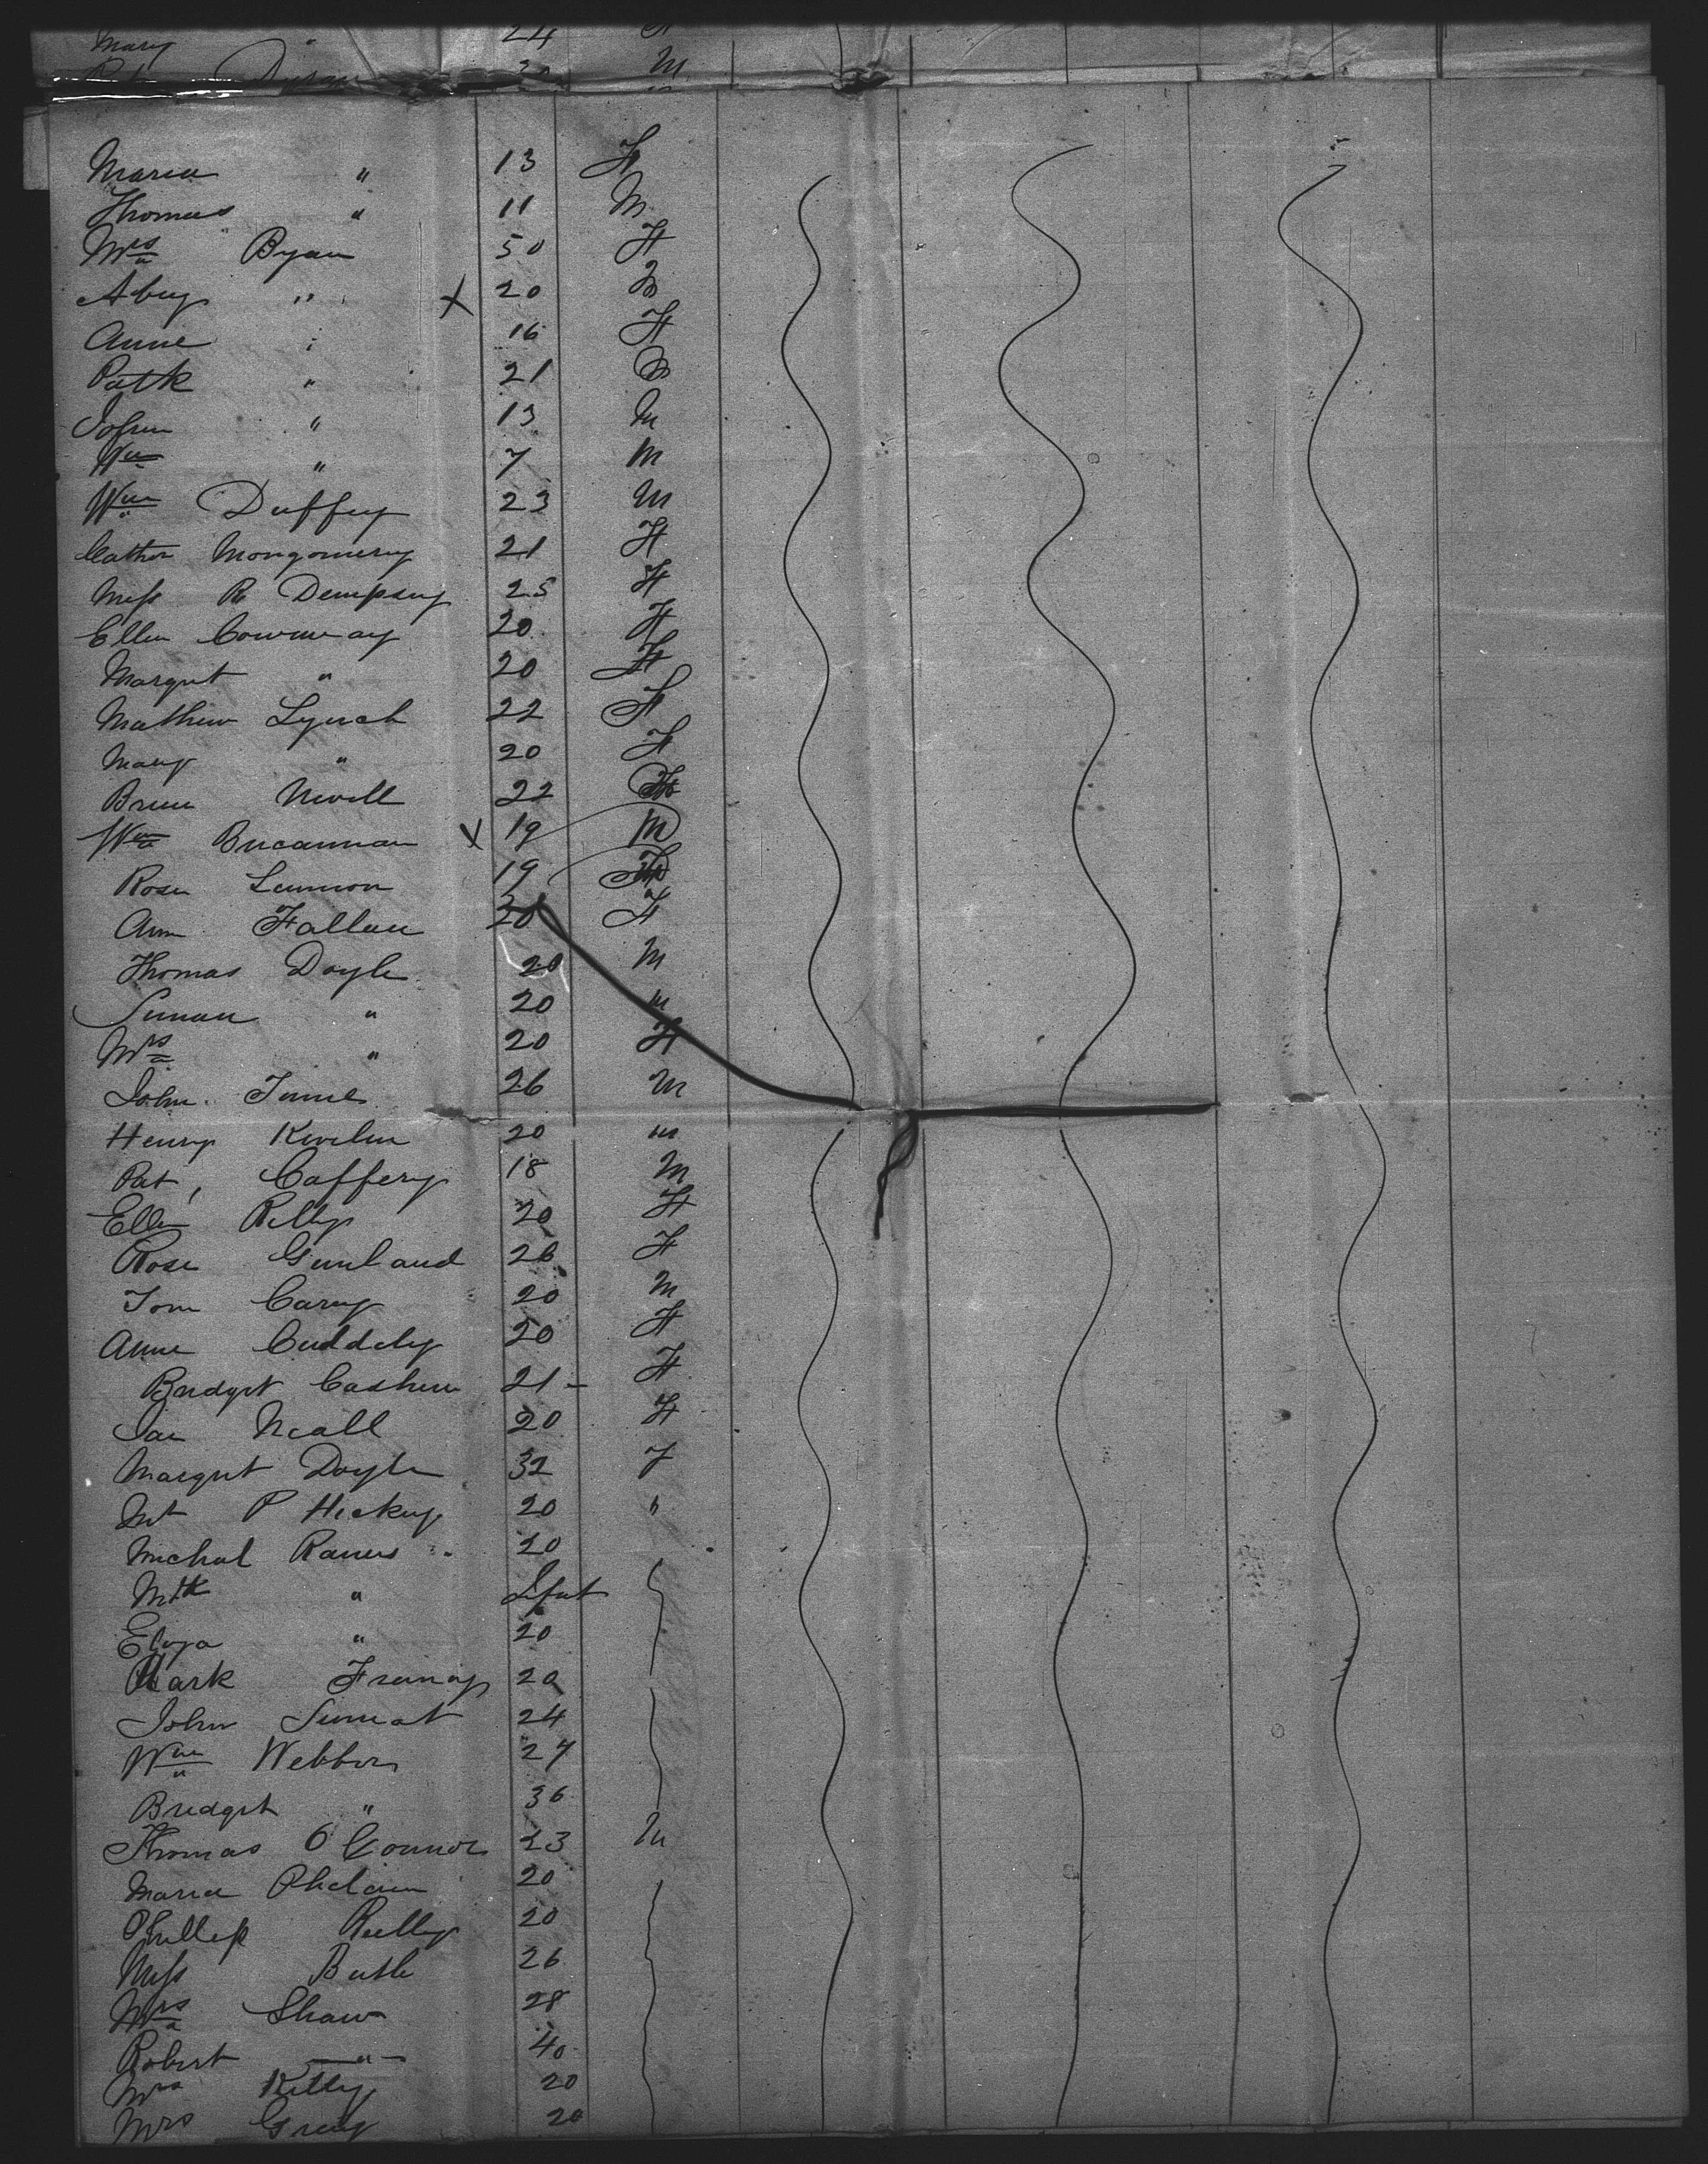 Mary " 24 F
M
Maria " 13 F
Thomas " 11 M
Mrs Ryan 50 F
Abey " X 20 M
Anne " 16 F
Patk " 21 M
John " 13 M
Wm " 7 M
Wm Duffey 23 M
Cather Montgomery 21 F
Miss R Dempsey 25 F
Ellen Conway 20 F
Margret " 20 F
Mathew Lynch 22 F
Mary " 20 F
Nivell 22
Wm Bucannan X 19 M
Rose Lennon 19 F
Ann Fallan 20 F
Thomas Doyle 20 M
" 20 M
Mrs " 20 F
John 26 M
Henry 20 M
Pat, Caffery 18 M
Ellen Reilly 20 F
Rose 26 F
Tom Carey 20 M
Anne Cuddehy 20 F
Bridget Cashen 21 - F
Neall 20 F
Margret Doyle 32 F
P Hickey 20 "
Michal 20
" Ifnt
Eliza " 20
Mark 20
John 24
Wm Webber 27
Bridget " 36
Thomas O'Connor 23 M
Maria Phelain 20
Phillip Reilly 20
Miss Butle 26
Mrs Shaw 28
Robert -"- 40
Mrs Kelly 20
Mrs 20